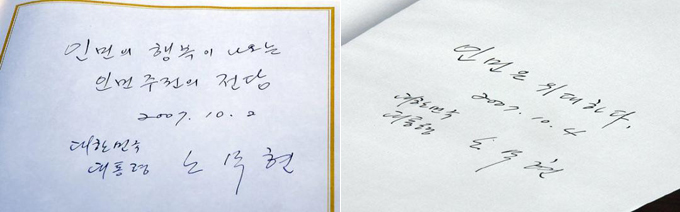 인민의 행복이 나오는
인민주권의 전당
2007. 10. 2
대한민국
대통령 노무현
인민은 위대하다.
2007. 10. 4
대한민국
대통령 노무현